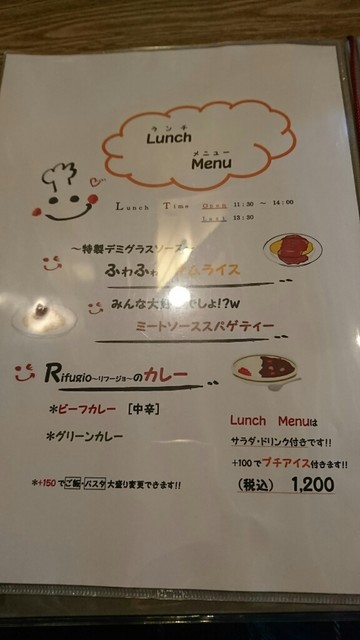 ランチ
Lunch
メニュー
Menu
Lunch Time Open 11:30 ～ 14:00
Last 13:30
～特製デミグラスソース～
ふわふわ オムライス
みんな大好きでしょ!?w
ミートソーススパゲティー
Rifugio～リフージョ～のカレー
＊ビーフカレー [中辛]
＊グリーンカレー
Lunch Menuは
サラダ・ドリンク付きです!!
+100でプチアイス付きます!!
(税込) 1,200
＊+150でご飯・パスタ大盛り変更できます!!